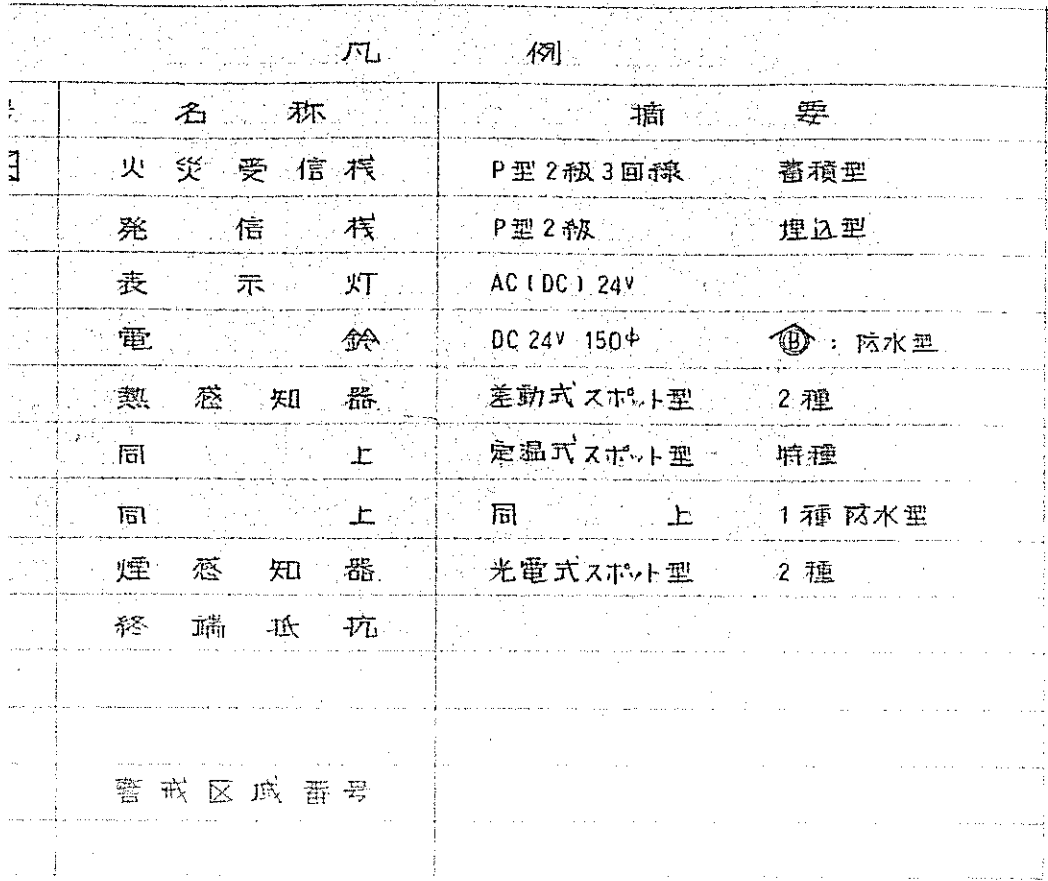 凡例
号 名称 摘要
火災受信機 P型2級3回線 蓄積型
発信機 P型2級 埋込型
表示灯 AC(DC) 24V
電鈴 DC 24V 150φ Ⓑ : 防水型
熱感知器 差動式スポット型 2種
同上 定温式スポット型 特種
同上 同上 1種防水型
煙感知器 光電式スポット型 2種
終端抵抗
警戒区域番号